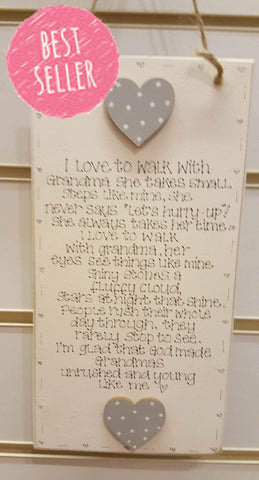 BEST
SELLER
I Love to walk with
Grandma she takes small
steps like mine, she
never says "Let's hurry-up"!
She always takes her time
I Love to walk
with grandma, her
eyes see things like mine
Shiny stones a
fluffy cloud,
Stars at night that shine.
People rush their whole
day through, they
rarely stop to see.
I'm glad that God made
Grandmas
unrushed and young
Like me